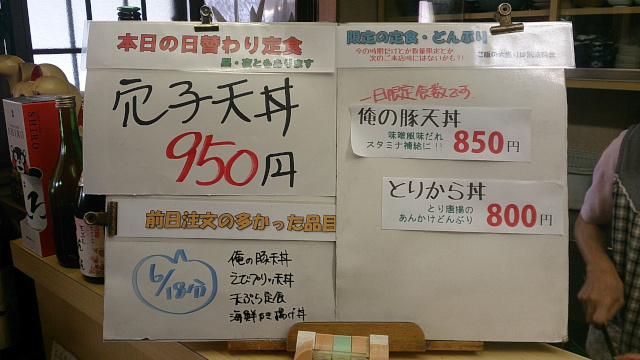 本日の日替わり定食
昼・夜ともあります
穴子天丼
950円
前日注文の多かった品目
6/18分
俺の豚天丼
えびプリッ天丼
天ぷら定食
海鮮かき揚げ丼
限定の定食・どんぶり
今の時期だけとか数量限定とか
次のご来店時にはないかも?!
一日限定食数です
俺の豚天丼
味噌風味だれ
スタミナ補給に!! 850円
とりから丼
とり唐揚の
あんかけどんぶり 800円
SHIRO